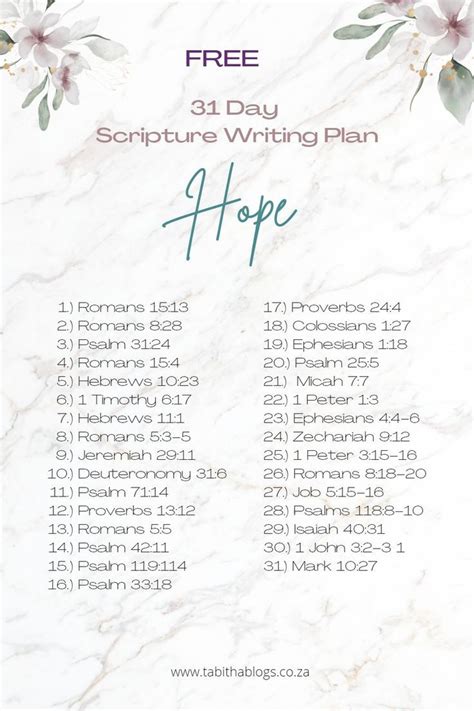 FREE
31 Day
Scripture Writing Plan
Hope
1.) Romans 15:13
2.) Romans 8:28
3.) Psalm 31:24
4.) Romans 15:4
5.) Hebrews 10:23
6.) 1 Timothy 6:17
7.) Hebrews 11:1
8.) Romans 5:3-5
9.) Jeremiah 29:11
10.) Deuteronomy 31:6
11.) Psalm 71:14
12.) Proverbs 13:12
13.) Romans 5:5
14.) Psalm 42:11
15.) Psalm 119:114
16.) Psalm 33:18
17.) Proverbs 24:4
18.) Colossians 1:27
19.) Ephesians 1:18
20.) Psalm 25:5
21.) Micah 7:7
22.) 1 Peter 1:3
23.) Ephesians 4:4-6
24.) Zechariah 9:12
25.) 1 Peter 3:15-16
26.) Romans 8:18-20
27.) Job 5:15-16
28.) Psalms 118:8-10
29.) Isaiah 40:31
30.) 1 John 3:2-3 1
31.) Mark 10:27
www.tabithablogs.co.za